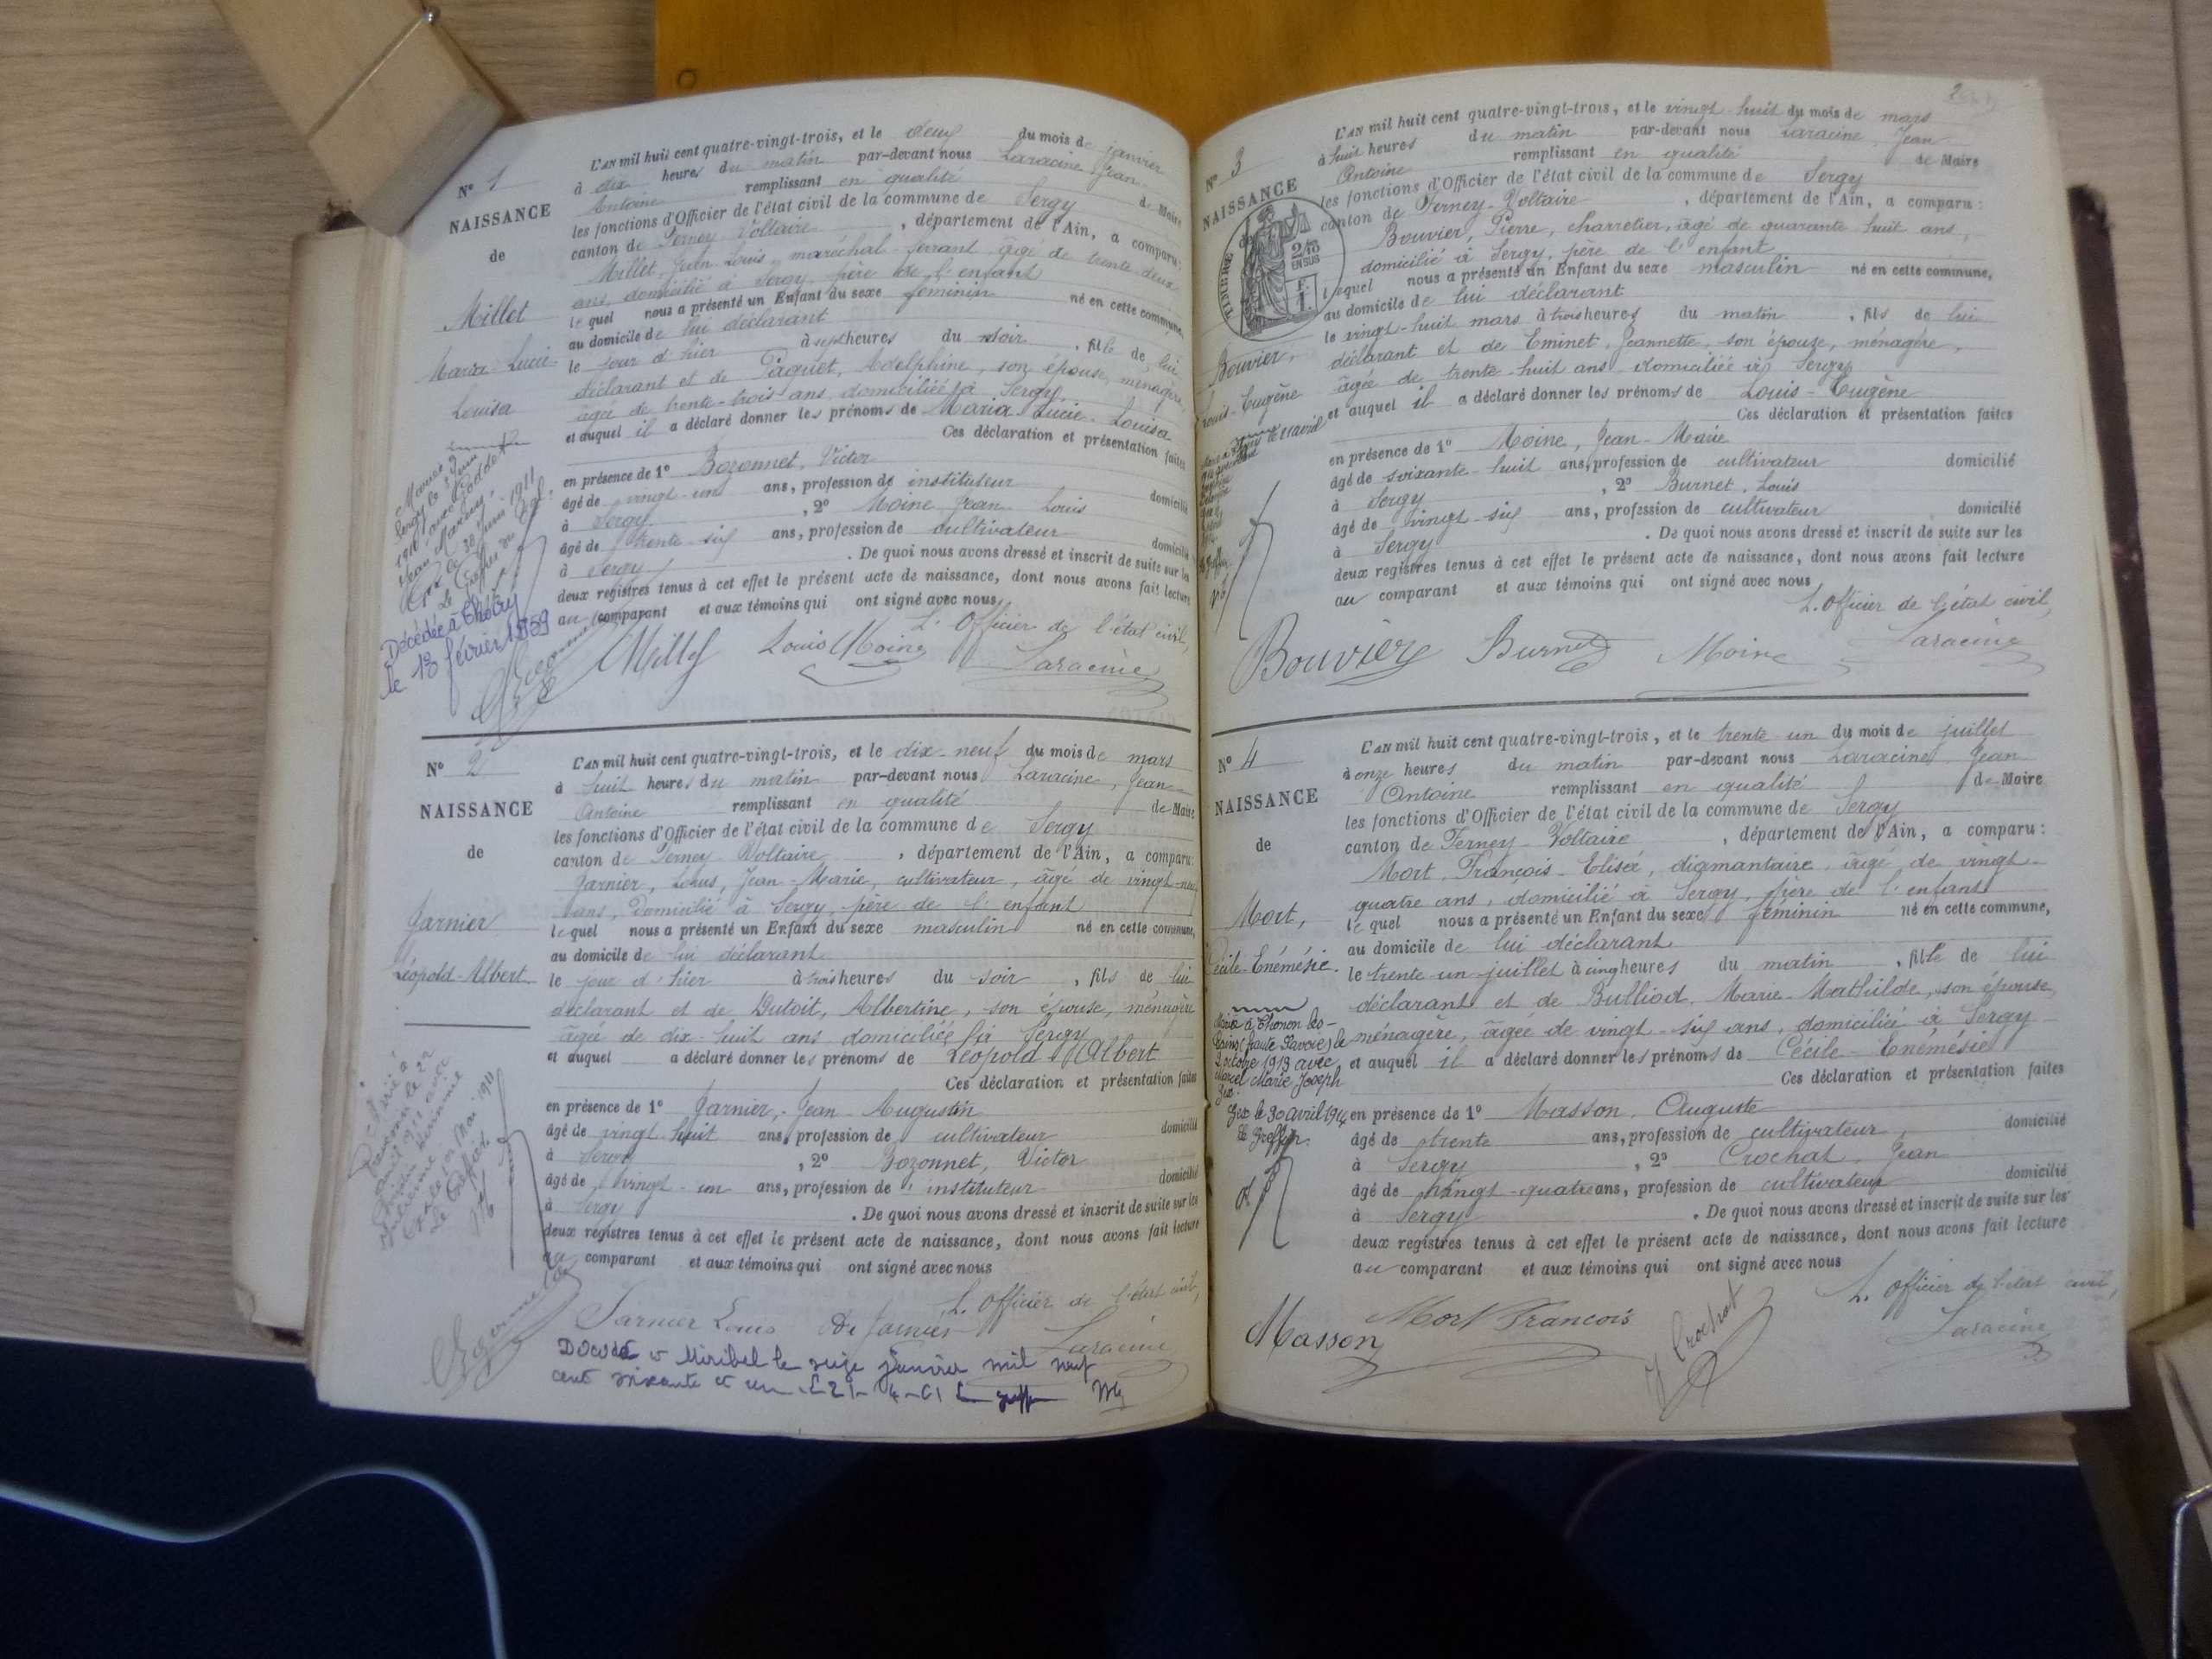 N° 1
NAISSANCE
de
Millet
Maria Lucie
Louisa
L'AN mil huit cent quatre-vingt-trois, et le deux du mois de janvier
à dix heures du matin par-devant nous Laracine Jean
Antoine remplissant en qualité de Maire
les fonctions d'Officier de l'état civil de la commune de Sergy
canton de Ferney Voltaire, département de l'Ain, a comparu:
Millet, Jean Louis, maréchal-ferrant, âgé de trente-deux
ans, domicilié à Sergy, père de l'enfant
lequel nous a présenté un Enfant du sexe féminin né en cette commune,
au domicile de lui déclarant
le jour d'hier à sept heures du soir, fille de lui
déclarant et de Paquet, Adelphine, son épouse, ménagère,
âgée de trente-trois ans domiciliée à Sergy
et auquel il a déclaré donner les prénoms de Maria-Lucie-Louisa
Ces déclaration et présentation faites
en présence de 1° Bozonnet, Victor
âgé de vingt-un ans, profession de instituteur domicilié
à Sergy, 2° Moine Jean Louis
âgé de trente six ans, profession de cultivateur domicilié
à Sergy. De quoi nous avons dressé et inscrit de suite sur les
deux registres tenus à cet effet le présent acte de naissance, dont nous avons fait lecture
au comparant et aux témoins qui ont signé avec nous
L'Officier de l'état civil,
Millet Louis Moine Laracine
Décédée à Thoiry
le 13 février 1959
N° 2
NAISSANCE
de
Garnier
Léopold-Albert
L'AN mil huit cent quatre-vingt-trois, et le dix-neuf du mois de mars
à huit heures du matin par-devant nous Laracine, Jean
Antoine remplissant en qualité de Maire
les fonctions d'Officier de l'état civil de la commune de Sergy
canton de Ferney Voltaire, département de l'Ain, a comparu:
Garnier, Louis, Jean-Marie, cultivateur, âgé de vingt-neuf
ans, domicilié à Sergy, père de l'enfant
lequel nous a présenté un Enfant du sexe masculin né en cette commune,
au domicile de lui déclarant
le jour d'hier à trois heures du soir, fils de lui
déclarant et de Dutoit, Albertine, son épouse, ménagère
âgée de dix-huit ans domiciliée à Sergy
et auquel a déclaré donner les prénoms de Léopold Albert
Ces déclaration et présentation faites
en présence de 1° Garnier, Jean-Augustin
âgé de vingt huit ans, profession de cultivateur domicilié
à Sergy, 2° Bozonnet, Victor
âgé de vingt-un ans, profession de instituteur domicilié
à Sergy. De quoi nous avons dressé et inscrit de suite sur les
deux registres tenus à cet effet le présent acte de naissance, dont nous avons fait lecture
au comparant et aux témoins qui ont signé avec nous
L'Officier de l'état civil,
Garnier Louis Garnier Laracine
Décédé à Miribel le seize janvier mil neuf
cent soixante et un
2
N° 3
NAISSANCE
TIMBRE
2/10
EN SUS
Bouvier,
Louis-Eugène
L'AN mil huit cent quatre-vingt-trois, et le vingt-huit du mois de mars
à huit heures du matin par-devant nous Laracine, Jean
Antoine remplissant en qualité de Maire
les fonctions d'Officier de l'état civil de la commune de Sergy
canton de Ferney-Voltaire, département de l'Ain, a comparu:
Bouvier, Pierre, charretier, âgé de quarante-huit ans,
domicilié à Sergy, père de l'enfant
lequel nous a présenté un Enfant du sexe masculin né en cette commune,
au domicile de lui déclarant
le vingt-huit mars à trois heures du matin, fils de lui
déclarant et de Eminet, Jeannette, son épouse, ménagère,
âgée de trente-huit ans domiciliée à Sergy
et auquel il a déclaré donner les prénoms de Louis-Eugène
Ces déclaration et présentation faites
en présence de 1° Moine, Jean-Marie
âgé de soixante-huit ans, profession de cultivateur domicilié
à Sergy, 2° Burnet, Louis
âgé de vingt-six ans, profession de cultivateur domicilié
à Sergy. De quoi nous avons dressé et inscrit de suite sur les
deux registres tenus à cet effet le présent acte de naissance, dont nous avons fait lecture
au comparant et aux témoins qui ont signé avec nous
L'Officier de l'état civil,
Bouvier Burnet Moine Laracine
N° 4
NAISSANCE
de
Mort,
Cécile-Enémésie
Mariée à Thonon-les-
Bains (Haute Savoie) le
octobre 1913 avec
Marcel Marie Joseph
Gex le 30 avril 1914
Le Greffier
L'AN mil huit cent quatre-vingt-trois, et le trente un du mois de juillet
à onze heures du matin par-devant nous Laracine, Jean
Antoine remplissant en qualité de Maire
les fonctions d'Officier de l'état civil de la commune de Sergy
canton de Ferney-Voltaire, département de l'Ain, a comparu:
Mort, François-Elisée, diamantaire, âgé de vingt-
quatre ans, domicilié à Sergy, père de l'enfant
lequel nous a présenté un Enfant du sexe féminin né en cette commune,
au domicile de lui déclarant
le trente-un juillet à cinq heures du matin, fille de lui
déclarant et de Bulliod, Marie-Mathilde, son épouse,
ménagère, âgée de vingt-six ans, domiciliée à Sergy
et auquel il a déclaré donner les prénoms de Cécile-Enémésie
Ces déclaration et présentation faites
en présence de 1° Masson, Auguste
âgé de trente ans, profession de cultivateur, domicilié
à Sergy, 2° Crochat, Jean
âgé de vingt-quatre ans, profession de cultivateur domicilié
à Sergy. De quoi nous avons dressé et inscrit de suite sur les
deux registres tenus à cet effet le présent acte de naissance, dont nous avons fait lecture
au comparant et aux témoins qui ont signé avec nous
L'Officier de l'état civil,
Masson Mort François J Crochat Laracine